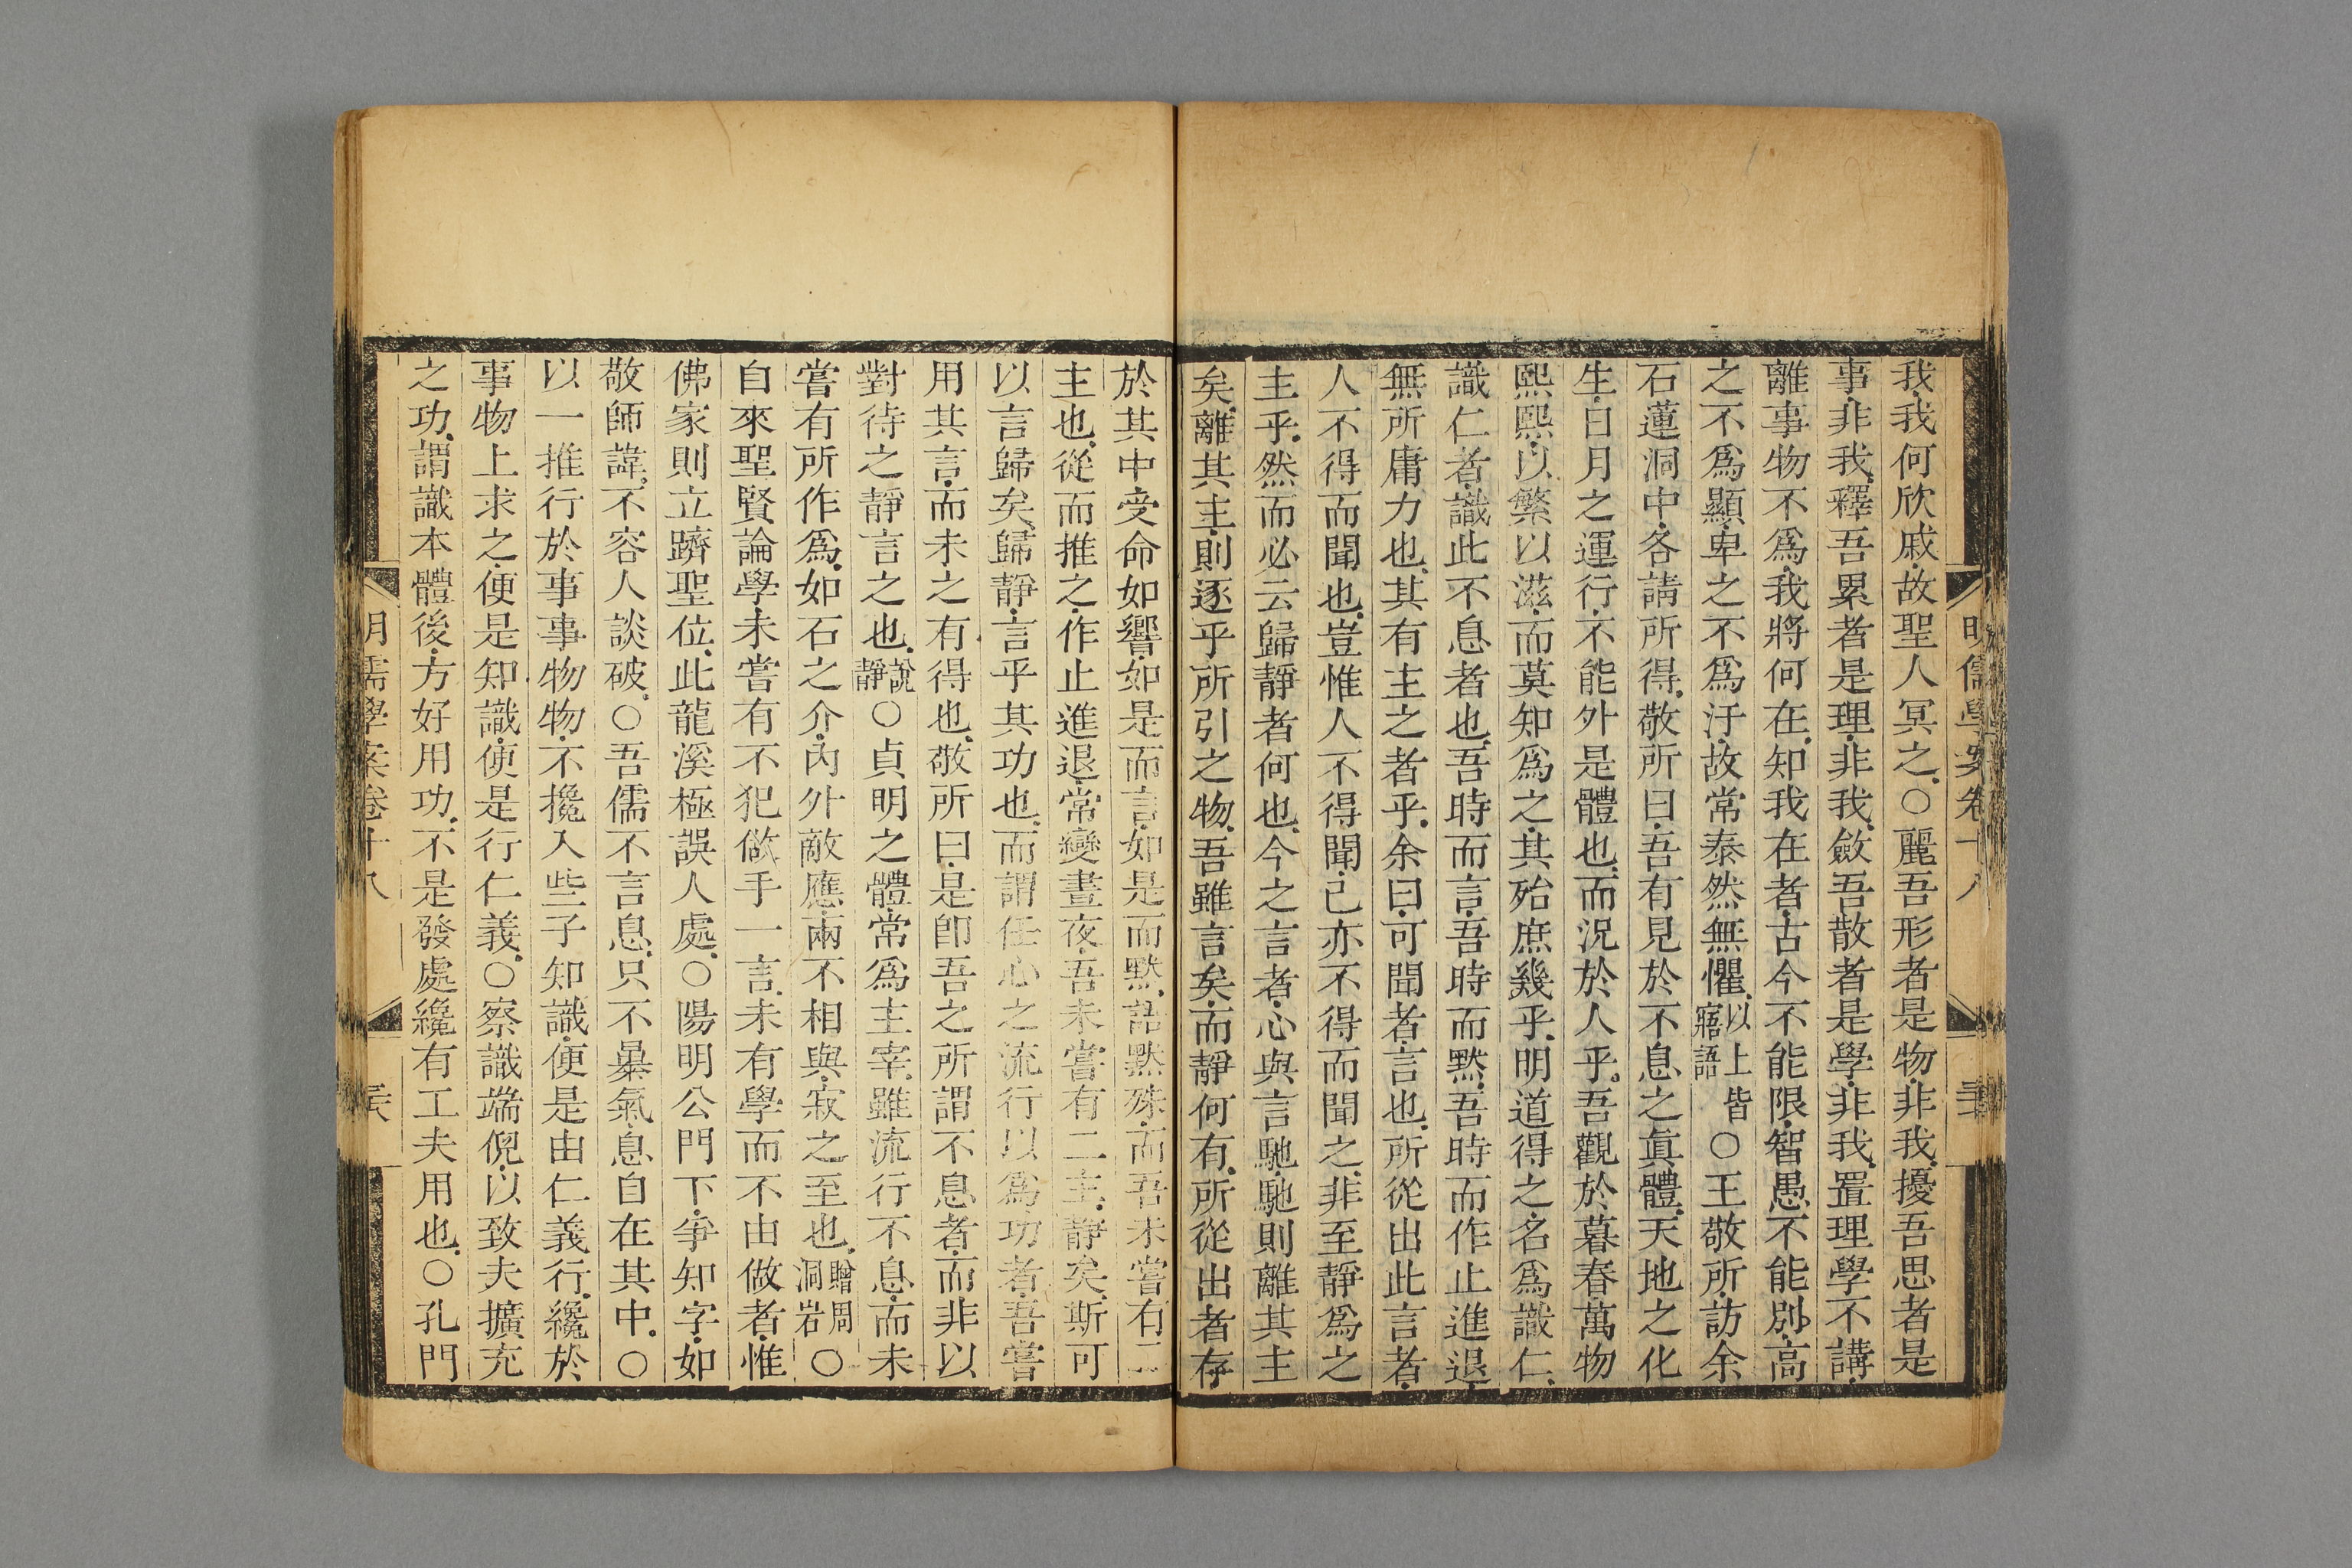 我我何欣戚故聖人冥之○麗吾形者是物非我擾吾思者是
事非我釋吾累者是理非我斂吾散者是學非我置理學不講
離事物不爲我將何在知我在者古今不能限智愚不能別高
之不爲顯卑之不爲汙故常泰然無懼以上皆寤語○王敬所訪余
石蓮洞中各請所得敬所曰吾有見於不息之眞體天地之化
生日月之運行不能外是體也而況於人乎吾觀於暮春萬物
熙熙以繁以滋而莫知爲之其殆庶幾乎明道得之名爲識仁
識仁者識此不息者也吾時而言吾時而默吾時而作止進退
無所庸力也其有主之者乎余曰可聞者言也所從出此言者
人不得而聞也豈惟人不得聞己亦不得而聞之非至靜爲之
主乎然而必云歸靜者何也今之言者心與言馳馳則離其主
矣離其主則逐乎所引之物吾雖言矣而靜何有所從出者存
於其中受命如響如是而言如是而默語默殊而吾未嘗有二
主也從而推之作止進退常變晝夜吾未嘗有二主靜矣斯可
以言歸矣歸靜言乎其功也而謂任心之流行以爲功者吾嘗
用其言而未之有得也敬所曰是卽吾之所謂不息者而非以
對待之靜言之也說靜○貞明之體常爲主宰雖流行不息而未
嘗有所作爲如石之介內外敵應兩不相與寂之至也贈周洞岩○
自來聖賢論學未嘗有不犯做手一言未有學而不由做者惟
佛家則立躋聖位此龍溪極誤人處○陽明公門下爭知字如
敬師諱不容人談破○吾儒不言息只不暴氣息自在其中○
以一推行於事事物物不攙入些子知識便是由仁義行纔於
事物上求之便是知識便是行仁義○察識端倪以致夫擴充
之功謂識本體後方好用功不是發處纔有工夫用也○孔門
明儒學案卷十八